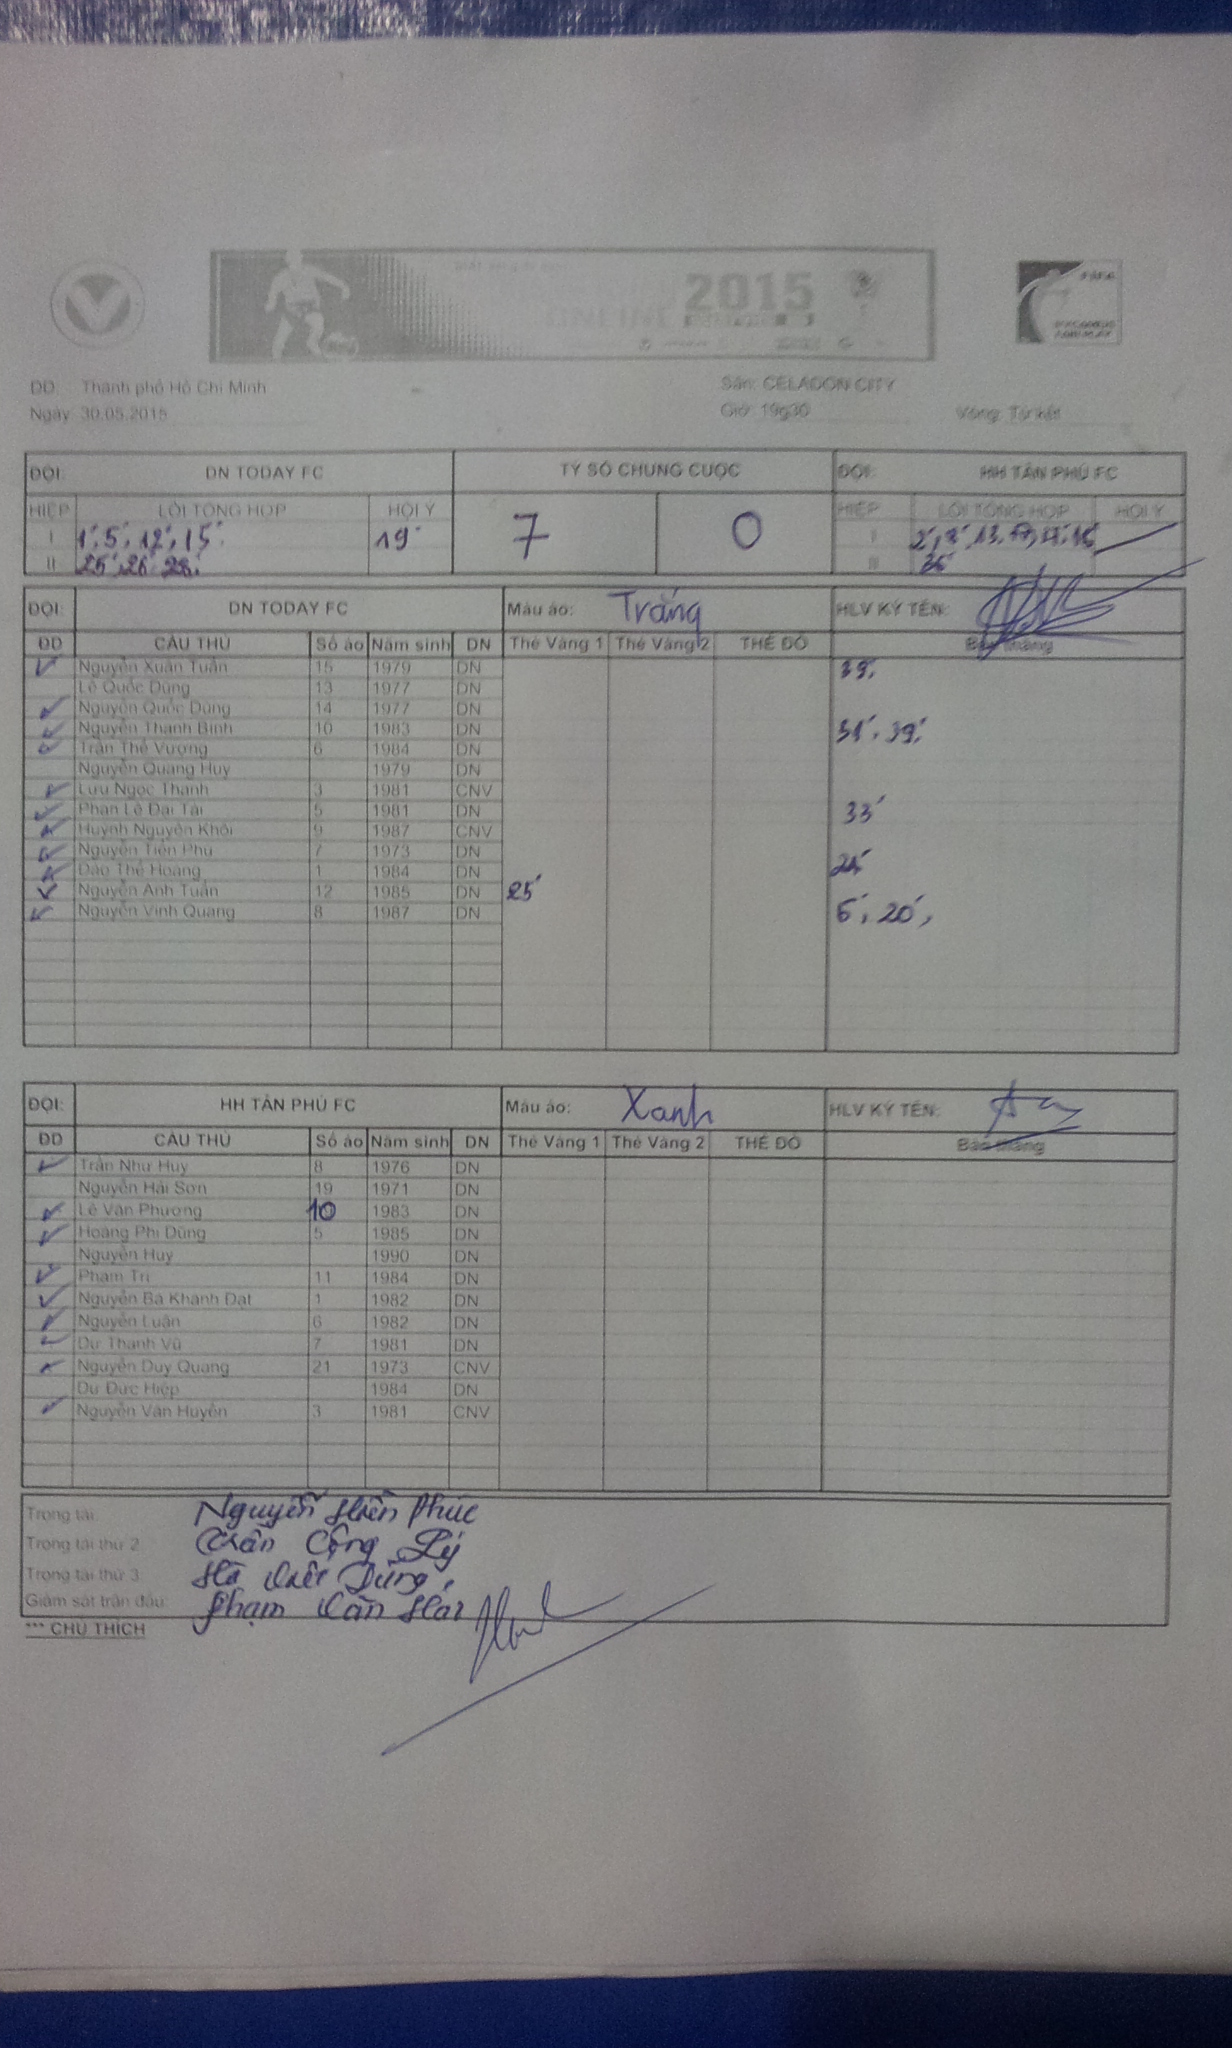 ONLINE 2015
ĐĐ: Thành phố Hồ Chí Minh Sân: CELADON CITY
Ngày: 30.05.2015 Giờ: 19g30 Vòng: Tứ kết
ĐỘI: DN TODAY FC TỶ SỐ CHUNG CUỘC ĐỘI: HH TÂN PHÚ FC
HIỆP LỖI TỔNG HỢP HỘI Ý 7 0 HIỆP LỖI TỔNG HỢP HỘI Ý
I 1', 5', 12', 15' 19' I
II 25', 26' 28' II
ĐỘI: DN TODAY FC Màu áo: Trắng HLV KÝ TÊN:
ĐD CẦU THỦ Số áo Năm sinh DN Thẻ Vàng 1 Thẻ Vàng 2 THẺ ĐỎ Bàn thắng
Nguyễn Xuân Tuấn 15 1979 DN 39'
Lê Quốc Dũng 13 1977 DN
Nguyễn Quốc Dũng 14 1977 DN
Nguyễn Thanh Bình 10 1983 DN 31', 39'
Trần Thế Vượng 6 1984 DN
Nguyễn Quang Huy 1979 DN
Lưu Ngọc Thanh 3 1981 CNV
Phan Lê Đại Tài 5 1981 DN 33'
Huỳnh Nguyên Khôi 9 1987 CNV
Nguyễn Tiến Phú 7 1973 DN
Đào Thế Hoàng 1 1984 DN
Nguyễn Anh Tuấn 12 1985 DN 25'
Nguyễn Vinh Quang 8 1987 DN 6', 20',
ĐỘI: HH TÂN PHÚ FC Màu áo: Xanh HLV KÝ TÊN:
ĐD CẦU THỦ Số áo Năm sinh DN Thẻ Vàng 1 Thẻ Vàng 2 THẺ ĐỎ Bàn thắng
Trần Như Huy 8 1976 DN
Nguyễn Hải Sơn 19 1971 DN
Lê Văn Phương 10 1983 DN
Hoàng Phi Dũng 5 1985 DN
Nguyễn Huy 1990 DN
Phạm Trí 11 1984 DN
Nguyễn Bá Khánh Đạt 1 1982 DN
Nguyễn Luân 6 1982 DN
Dư Thanh Vũ 7 1981 DN
Nguyễn Duy Quang 21 1973 CNV
Dư Đức Hiệp 1984 DN
Nguyễn Văn Huyên 3 1981 CNV
Trọng tài: Nguyễn Hiền Phúc
Trọng tài thứ 2: Trần Công Lý
Trọng tài thứ 3: Hà Việt Dũng
Giám sát trận đấu: Phạm Văn Hải
*** CHÚ THÍCH